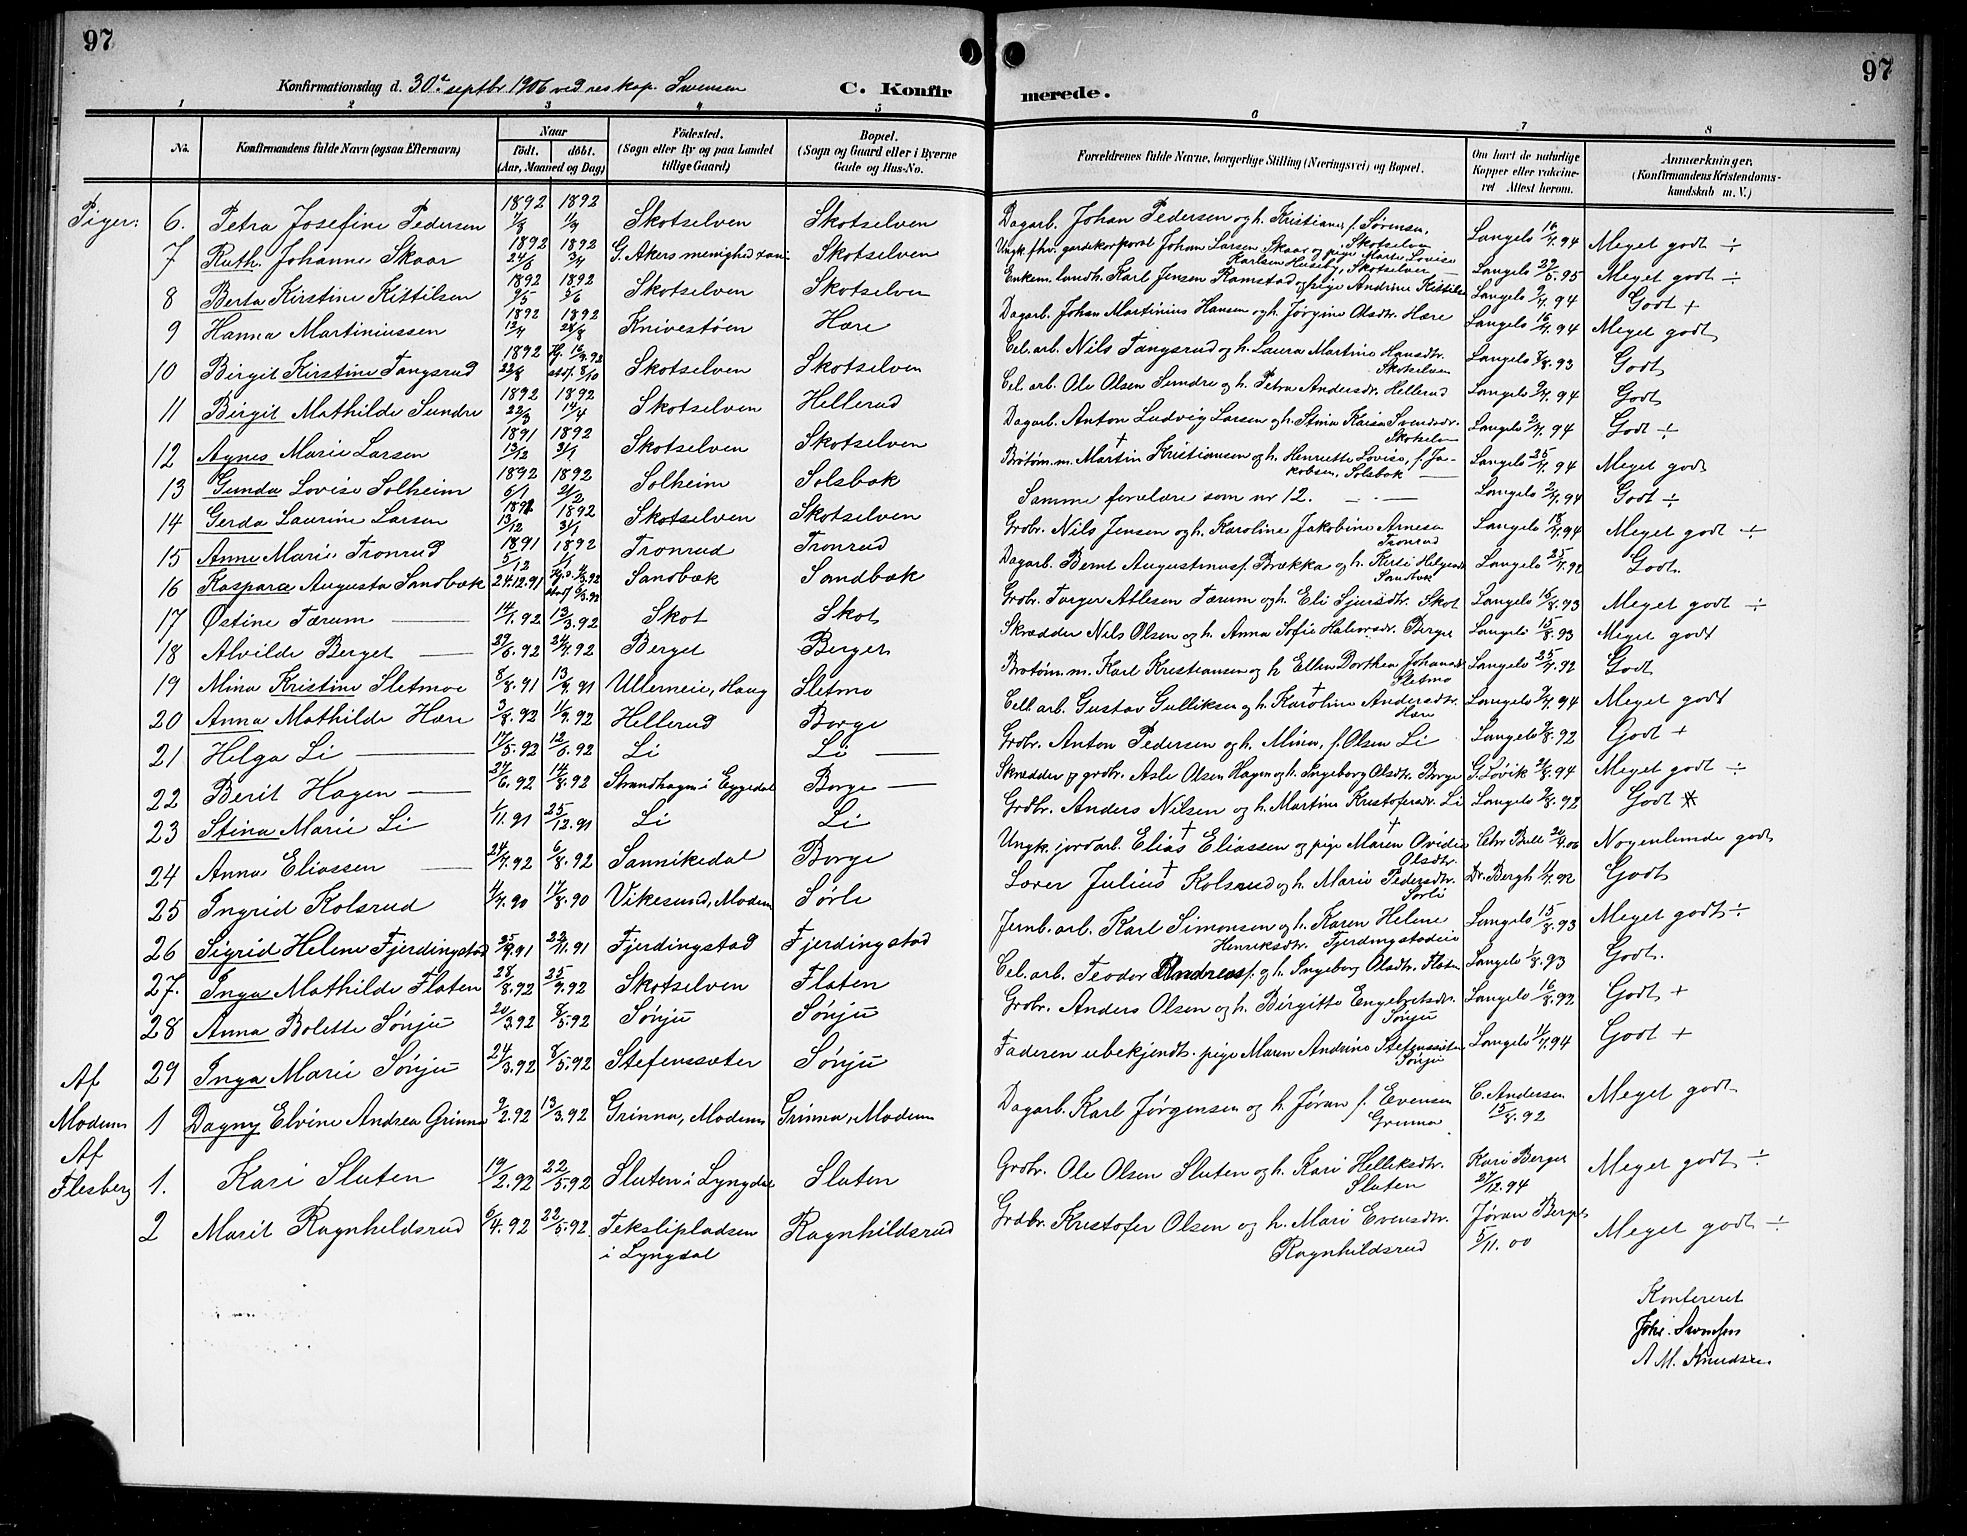 97
97
Konfirmationsdag d. 30te septbr. 1906 ved res. kap. Svensen
C. Konfirmerede.
1 2 3 4 5 6 7 8
No.
Konfirmandens fulde Navn (ogsaa Efternavn)
Naar
födt. döbt.
(Aar, Maaned og Dag)
Födested.
(Sogn eller By og paa Landet
tillige Gaard)
Bopæl.
(Sogn og Gaard eller i Byerne
Gade og Hus-No.
Forældrenes fulde Navne, borgerlige Stilling (Næringsvei) og Bopæl.
Om havt de naturlige
Kopper eller vakcine-
ret Attest herom.
Anmærkninger.
(Konfirmandens Kristendoms-
kundskab m. V.)
Piger: 6. Petra Josefine Pedersen 1892 1892 Skotselven Skotselven Dagarb. Johan Pedersen og h. Kristiane, f. Sørensen, Skotselven Langels 16/4.94 Meget godt ÷
7 Ruth Johanne Skaar 1892 24/ 1892 3/4 G. Akers menighed Skotselven Ungk. fhv. gardekorporal Johan Larsen Skaar og pige Marte Lovise Karlsen Huseby, Skotselven Langels 29/5.95 Meget godt ÷
8 Berta Kirstine Kittilsen 1892 9/5 1892 5/6 Skotselven Skotselven Enkem. landh. Karl Jensen Ramstad og pige Andrine Kittils Langels 2/4.94 Godt +
9 Hanna Martiniussen 1892 12/4 1892 28/8 Knivestøen Hære Dagarb. Johan Martinius Hansen og h. Jørgine Olsdtr. Hære Langels 16/4.94 Meget godt
10 Birgit Kirstine Tangsrud 1892 22/8 Skotselven Skotselven Cel. arb. Nils Tangsrud og h. Laura Martine Hansdtr. Skotselven Langels 8/8.93 Godt
11 Birgit Mathilde Sundre 1892 22/3 1892 14/4 Skotselven Hellerud Cel. arb. Ole Olsen Sundre og h. Petra Andersdr. Hellerud Langels 2/4.94 Godt
12 Agnes Marie Larsen 1891 13/12 1892 31/1 Skotselven Skotselven Dagarb. Anton Ludvig Larsen og h. Stina Kaisa Svendsdr. Skotselven Langels 2/4.94 Godt ÷
13 Gunda Lovise Solheim 1892 6/1 1892 21/2 Solheim Solsbok Brøtøm. m. Martin † Kristiansen og h. Henriette Lovise, f. Jakobsen, Solsbok Langels 25/4.94 Meget godt
14 Gerda Laurine Larsen 1891 13/12 1892 31/1 Skotselven Skotselven Samme forældre som nr 12. Langels 2/4.94 Godt ÷
15 Anne Marie Tronrud 1891 5/12 1892 Tronrud Tronrud Grdbr. Nils Jensen og h. Karoline Jakobine Arnesen Tronrud Langels 18/4.94 Meget godt ÷
16 Kaspara Augusta Sandbæk 24.12.91 Sandbæk Sandbæk Dagarb. Bernt Augustinus f. Brækka og h. Kirsti Helgesdr. Sandbæk Langels 25/4.92 Godt.
17 Østine Tærum 14/1.92 13/3.92 Skot Skot Grdbr. Torger Atlesen Tærum og h. Eli Sjursdtr. Skot Langels 16/8.93 Meget godt ÷
18 Alvilde Berget 29/6.92 24/7.92 Berget Berget Skrædder Nils Olsen og h. Anna Sofie Halvorsdr. Berget Langels 15/8.93 Meget godt
19 Mina Kristine Sletmoe 8/8.91 13/9.91 Ullerneie, Haug Sletmo Brøtøm. m. Karl Kristiansen og h. Ellen Dorthea Johansdr. Sletmo Langels 25/4.92 Godt
20 Anna Mathilde Hære 3/8.92 11/9.92 Hellerud Borge Cell. arb. Gustav Gulliksen og h. Karoline † Andersdtr. Hære Langels 2/4.94 Meget godt
21 Helga Li 17/5.92 12/6.92 Li Li Grdbr. Anton Pedersen og h. Mina, f. Olsen Li Langels 9/8.92 Godt +
22 Berit Hagen 27/6.92 14/8.92 Strandhagen i Eggedal Borge Skrædder og grdbr. Asle Olsen Hagen og h. Ingeborg Olsdtr. Borge G. Løvik 2/8.94 Meget godt ÷
23 Stina Marie Li 1/11.91 25/12.91 Li Li Grdbr. Anders Nilsen og h. Martine Kristofersdr. Li Langels 9/8.92 Godt
24 Anna Eliassen 24/4.92 6/8.92 Sannikedal Borge Ungk. jordarb. Elias † Eliassen og pige Maren † Ovidia Olsdtr. Chr Bull 20/4.06 Nogenlunde godt
25 Ingrid Kolsrud 4/7.90 17/8.90 Vikesund, Modum Sørli Lærer Julius † Kolsrud og h. Marie Pedersdtr. Sørli Dr. Bergh 11/7.92 Godt
26 Sigrid Helene Fjerdingstad 25/9.91 22/11.91 Fjerdingstad Fjerdingstad Jernb. arb. Karl Simonsen og h. Karen Helene Henriksdtr. Fjerdingstadeie Langels 15/8.93 Meget godt ÷
27. Inga Mathilde Flaten 28/8.92 25/9.92 Skotselven Flaten Cel. arb. Teodor Andreas f. og h. Ingeborg Olsdtr. Flaten Langels 1/8.93 Godt.
28 Anna Bolette Sønju 20/3.92 8/5.92 Sønju Sønju Grdbr. Anders Olsen og h. Birgitte Engebretsdr. Sønju Langels 16/8.92 Godt +
29 Inga Marie Sønju 24/3.92 8/5.92 Stefenssæter Sønju Faderen ubekjendt. pige Maren Andrine Stefenssæter Sønju Langels 11/4.94 Godt +
Af Modum 1 Dagny Elvine Andrea Grinna 9/2.92 13/3.92 Grinna, Modum Grinna, Modum Dagarb. Karl Jørgensen og h. Jøran f. Evensen Grinna C. Andersen 15/8.92 Meget godt
Af Flesberg 1. Kari Sluten 19/2.92 22/5.92 Sluten i Lyngdal Sluten Grdbr. Ole Olsen Sluten og h. Kari Helliksdtr. Sluten Kari Berget 27/12.94 Meget godt ÷
2 Marit Ragnhildsrud 6/4.92 22/5.92 Tekslipladsen i Lyngdal Ragnhildsrud Grdbr. Kristofer Olsen og h. Mari Evensdtr. Ragnhildsrud Jøran Berget 5/11.00 Meget godt ÷
Konfereret
Johs. Svensen
A M. Knudsen.